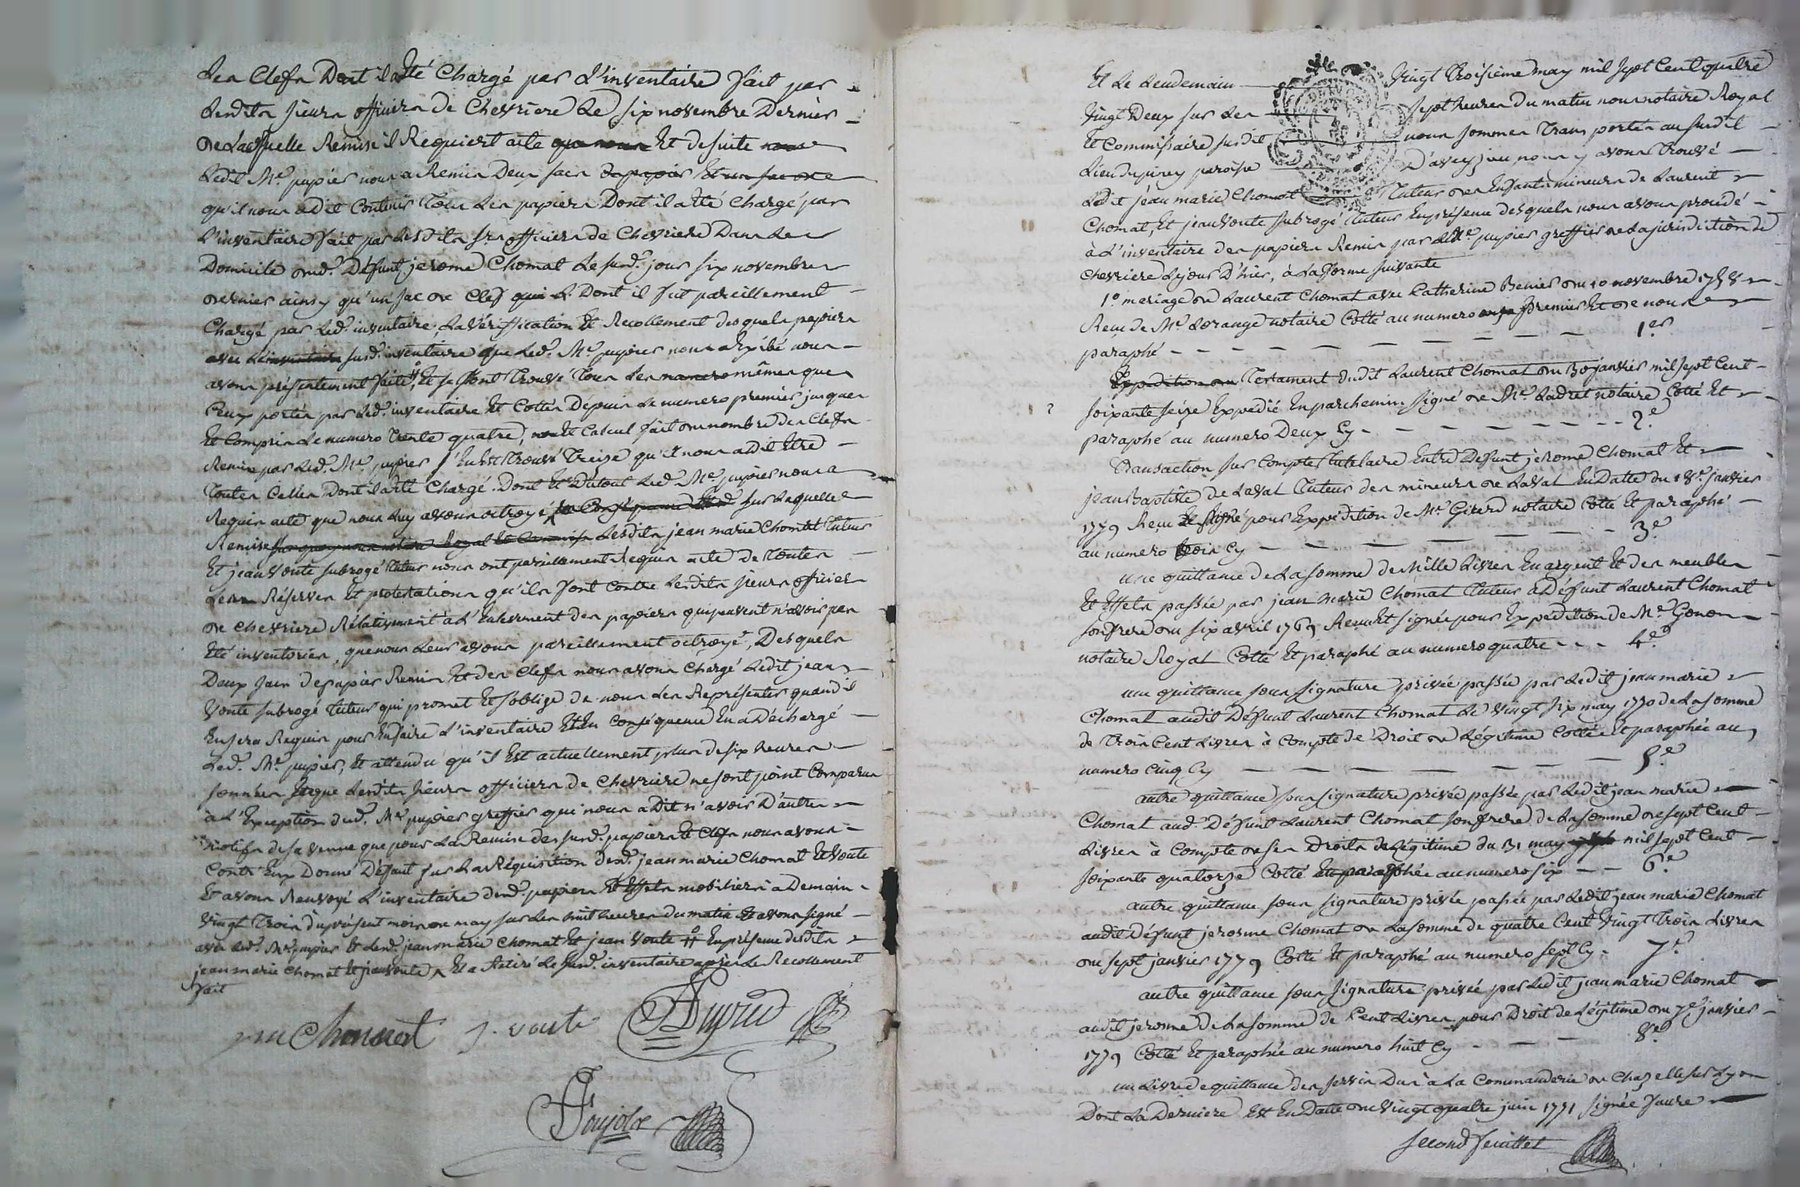 Les Clefs Dont il a Eté Chargé par L'inventaire fait par
Lesdits sieurs officiers de Chevriere Le six novembre Dernier
de Laquelle Remise il Requiert acte que nous Et de suite nous
Ledit Me. pupier nous a Remis Deux sacs de papier Et un sac de
qu'il nous a dit Contenir Tous Les papiers Dont il a Eté Chargé par
L'inventaire fait par Lesdits srs officiers de Chevriere Dans Le
Domicile dud. Défunt jerome Chomat Le sud. jour six novembre
dernier ainsy qu'un sac de Clefs qui L Dont il fut pareillement
Chargé par Led. inventaire La vériffication Et Recollement desquels papiers
avec L'inventaire susd. inventaire que Led. Me. pupier nous a Exibé nous
avons présentement faite, Et se sont Trouvé Tous Les mêmes que
Ceux portés par Led. inventaire Et Cottés Depuis Le numero premier jusques
Et Compris Le numero Trente quatre, Et Calcul fait du nombre des Clefs
Remis par Led. Me. pupier, s'en Est Trouvé Treize qu'il nous a dit Etre
Toutes Celles Dont il a Eté Chargé. Dont Et Dutout Led. Me. pupier nous a
Requis acte que nous Luy avons octroyé sur Laquelle
Remise Lesdits jean marie Chomat Tuteur
Et jean Voute subrogé Tuteur nous ont pareillement Requis acte de Toutes
Leurs Réserves Et protestations qu'ils font Contre Lesdits sieurs officiers
de Chevriere Rélativement à L'Enlevement des papiers qui peuvent n'avoir pas
Eté inventoriés, que nous Leur avons pareillement octroyé, Desquels
Deux sacs de papier Remis Et des Clefs nous avons Chargé Ledit jean
Voute subrogé Tuteur qui promet Et s'oblige de nous Les Représenter quand il
En sera Requis pour En faire L'inventaire Et En Conséquence En a Déchargé
Led. Me. pupier, Et attendu qu'il Est actuellement plus de six heures
sonnées Et que Lesdits sieurs officiers de Chevriere ne sont point Comparus
à L'Exception dud. Me. pupier greffier qui nous a Dit n'avoir D'autre
motifs de sa venue que pour La Remise des susd. papiers Et Clefs nous avons
Contre Eux Donné Défaut sur La Réquisition desd. jean marie Chomat Et Voute
Et avons Renvoyé L'inventaire desd. papiers Et Effets mobiliers à Demain
vingt Trois du présent mois de may sur Les huit heures du matin Et avons signé
avec Led. Me. pupier Et Lesd. jean marie Chomat Et jean Voute Enprésence desdits
jean marie Chomat Et jean voute, Et a Retiré Le susd. inventaire après Le Recollement
fait
jm Chomat j. voute Pupier
Et Le Lendemain Vingt Troisième may mil sept Cent quatre
Vingt Deux sur Les sept heures du matin nous notaire Royal
Et Commissaire susdit nous sommes Transportés au susdit
Lieu paroisse D'aveyzieu nous y avons Trouvé
Ledit jean marie Chomat Tuteur des Enfants mineurs de Laurent
Chomat, Et jean Voute subrogé Tuteur Enprésence desquels nous avons procédé
à L'inventaire des papiers Remis par Led. Me. pupier greffier de La jurisdiction de
Chevriere Le jour D'hier, à La forme suivante
1o. mariage de Laurent Chomat avec Catherine du 10 novembre 1758
Reçu de Me. Dorange notaire Cotté au numero premier Et de nous
paraphé 1er
Expedition du Testament dudit Laurent Chomat du 30 janvier mil sept Cent
soixante seize Expedié En parchemin signé de Me. Ladret notaire Cotté Et
paraphé au numero Deux Cy 2e
Transaction sur Compte Tutelaire Entre Défunt jerome Chomat Et
jean Baptiste de Laval Tuteur des mineurs de Laval En Datte du 18e. janvier
1779 Reçu Et signé pour Expédition de Me. Girard notaire Cotté Et paraphé
au numero trois Cy 3e
une quittance de La somme de Mille Livres En argent Et des meubles
Et Effets passée par jean Marie Chomat Tuteur à Défunt Laurent Chomat
son frere du six avril 1769 Reçu Et signée pour Expédition de Me. Gonon
notaire Royal Cotté Et paraphé au numero quatre 4e
une quittance sous signature privée passée par Ledit jean marie
Chomat audit Défunt Laurent Chomat Le Vingt six may 1770 de La somme
de Trois Cent Livres à Compte de Droit de Légitime Cottée Et paraphée au
numero Cinq Cy 5e
autre quittance sous signature privée passée par Ledit jean marie
Chomat aud. Défunt Laurent Chomat son frere de La somme de sept Cent
Livres à Compte de ses Droits de Légitime du 31 may mil sept Cent
soixante quatorze Cotté Et paraphée au numero six 6e
autre quittance sous signature privée passée par Ledit jean marie Chomat
audit Défunt jerosme Chomat de La somme de quatre Cent Vingt Trois Livres
du sept janvier 1779 Cotté Et paraphé au numero sept Cy 7e
autre quittance sous signature privée par Ledit jean marie Chomat
audit jerosme de La somme de Cent Livres pour Droit de Légitime du 7e janvier
1779 Cotté Et paraphée au numero huit Cy 8e
un Livre de quittance des servis Dus à La Commanderie de Chazelle sur Lyon
Dont La Derniere Est En Datte du Vingt quatre juin 1771 signée faure
second feuillet